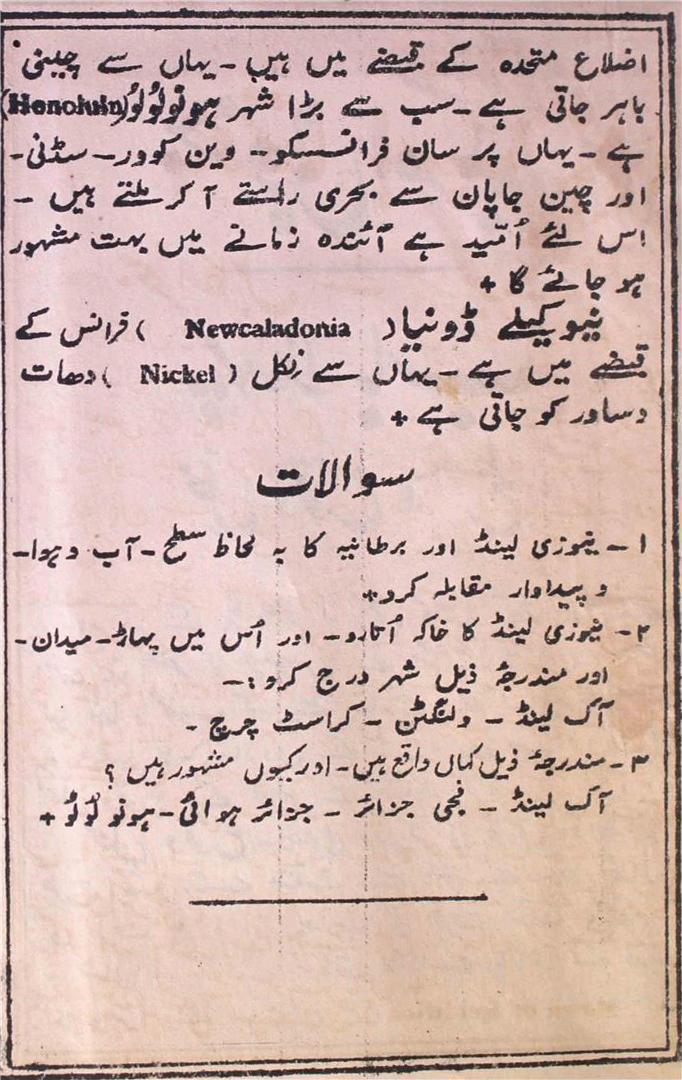 اضلاع متحدہ کے قبضے میں ہیں۔ یہاں سے چینی
باہر جاتی ہے۔ سب سے بڑا شہر ہونولُولُو (Honolulu)
ہے۔ یہاں پر سان فرانسسکو۔ وین کوور۔ سڈنی۔
اور چین جاپان سے بحری راستے آ کر ملتے ہیں۔
اس لئے اُمّید ہے آئندہ زمانے میں بہت مشہور
ہو جائے گا +
نیو کیلے ڈونیا (Newcaladonia) فرانس کے
قبضے میں ہے۔ یہاں سے نِکل (Nickel) دھات
دساور کو جاتی ہے +
سوالات
۱۔ نیوزی لینڈ اور برطانیہ کا بہ لحاظ سطح۔ آب و ہوا۔
و پیداوار مقابلہ کرو +
۲۔ نیوزی لینڈ کا خاکہ اُتارو۔ اور اُس میں پہاڑ۔ میدان۔
اور مندرجۂ ذیل شہر درج کرو :۔
آک لینڈ ۔ ولنگٹن ۔ کراسٹ چرچ ۔
۳۔ مندرجۂ ذیل کہاں واقع ہیں۔ اور کیوں مشہور ہیں ؟
آک لینڈ ۔ فجی جزائر ۔ جزائر ہوائی ۔ ہونو لُولُو +